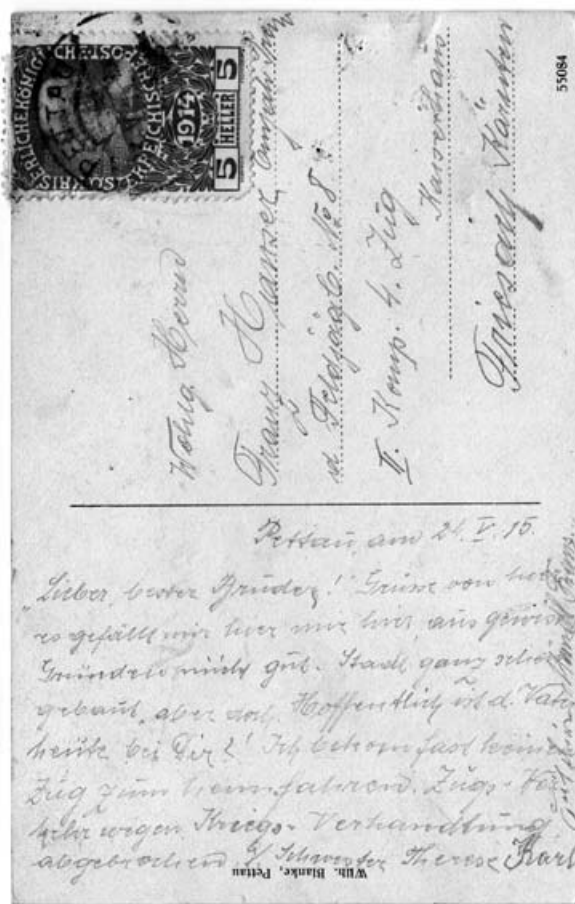 KAISERLICHE KÖNIGL
ÖSTERREICHISCHE POST
1914
5 HELLER 5
PETTAU
Wohlg. Herrn
Franz
d. Feldjägb. No 8
II. Komp. 4. Zug
Kaiser
Friesach Kärnten
55084
Pettau, am 24. V. 15.
Lieber, bester Bruder! Grüsse von hier
es gefällt mir hier aus
Gründen nicht gut. Stadt ganz schön
gebaut, aber doch. Hoffentlich ist d. Vater
heute bei Dir?! Ich bekom fast keinen
Zug zum heimfahren. Zugs-Ver
kehr wegen Kriegs-Verhandlung
abgebrochen. Schwester Therese Karl
Wilh. Blanke, Pettau